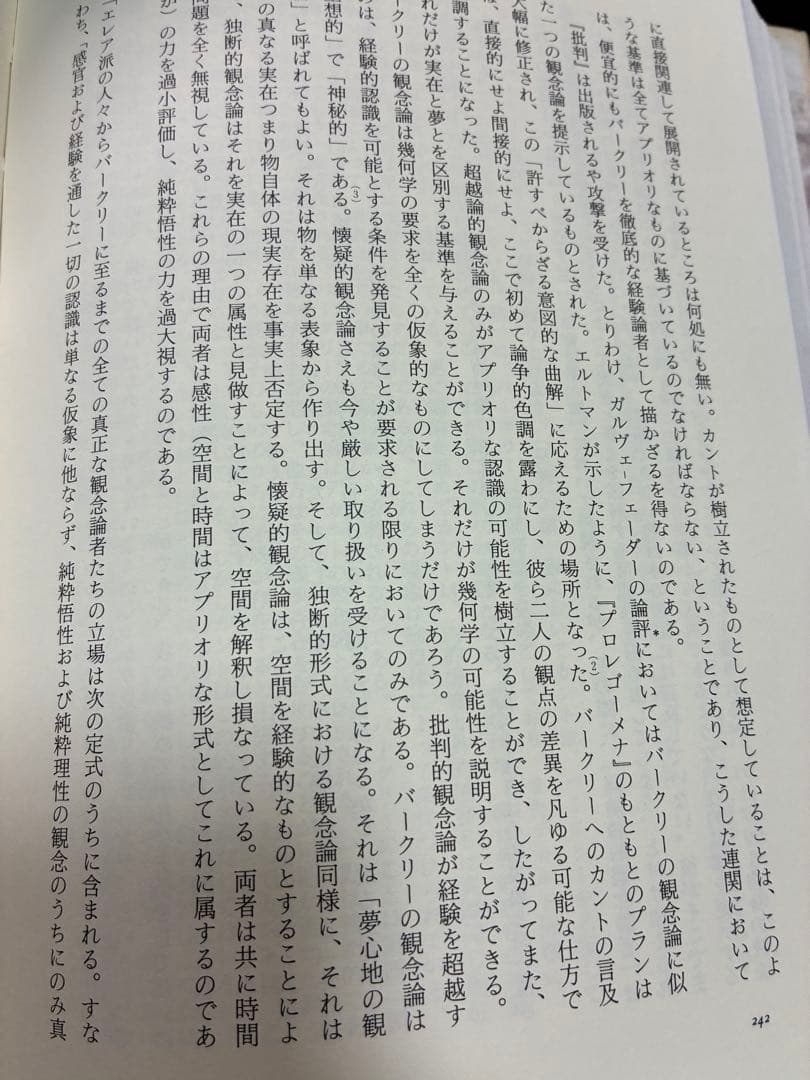 に直接関連して展開されているところは何処にも無い。カントが樹立されたものとして想定していることは、このよ
うな基準は全てアプリオリなものに基づいているのでなければならない、ということであり、こうした連関において
は、便宜的にもバークリーを徹底的な経験論者として描かざるを得ないのである。
『批判』は出版されるや攻撃を受けた。とりわけ、ガルヴェ‐フェーダーの論評*においてはバークリーの観念論に似
た一つの観念論を提示しているものとされた。エルトマンが示したように、『プロレゴーメナ』のもともとのプランは
大幅に修正され、この「許すべからざる意図的な曲解」に応えるための場所となった。(2)バークリーへのカントの言及
は、直接的にせよ間接的にせよ、ここで初めて論争的色調を露わにし、彼ら二人の観点の差異を凡ゆる可能な仕方で
調することになった。超越論的観念論のみがアプリオリな認識の可能性を樹立することができ、したがってまた、
れだけが実在と夢とを区別する基準を与えることができる。それだけが幾何学の可能性を説明することができる。
ークリーの観念論は幾何学の要求を全くの仮象的なものにしてしまうだけであろう。批判的観念論が経験を超越す
は、経験的認識を可能とする条件を発見することが要求される限りにおいてのみである。バークリーの観念論は
想的」で「神秘的」である。(3)懐疑的観念論さえも今や厳しい取り扱いを受けることになる。それは「夢心地の観
」と呼ばれてもよい。それは物を単なる表象から作り出す。そして、独断的形式における観念論同様に、それは
の真なる実在つまり物自体の現実存在を事実上否定する。懐疑的観念論は、空間を経験的なものとすることによ
、独断的観念論はそれを実在の一つの属性と見做すことによって、空間を解釈し損なっている。両者は共に時間
問題を全く無視している。これらの理由で両者は感性（空間と時間はアプリオリな形式としてこれに属するのであ
が）の力を過小評価し、純粋悟性の力を過大視するのである。
「エレア派の人々からバークリーに至るまでの全ての真正な観念論者たちの立場は次の定式のうちに含まれる。すな
わち、「感官および経験を通した一切の認識は単なる仮象に他ならず、純粋悟性および純粋理性の観念のうちにのみ真
242